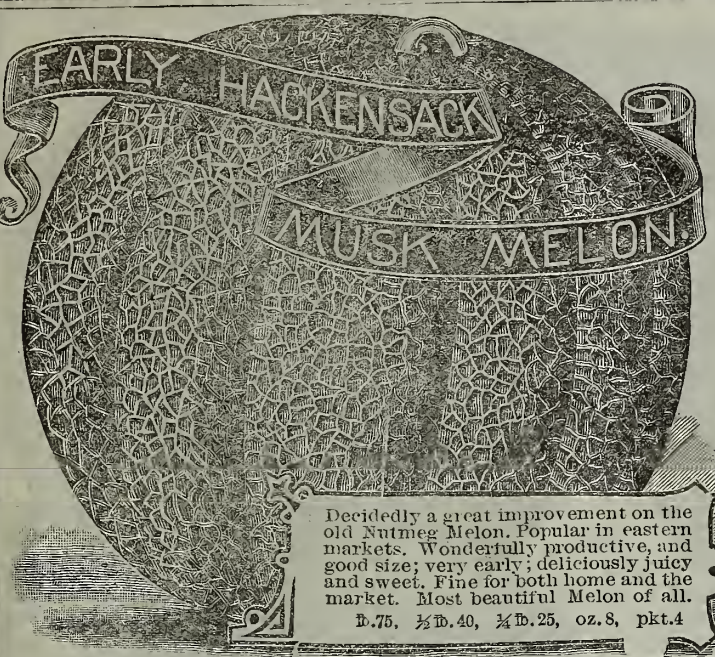 EARLY HACKENSACK
MUSK MELON.
Decidedly a great improvement on the
old Nutmeg Melon. Popular in eastern
markets. Wonderfully productive, and
good size; very early; deliciously juicy
and sweet. Fine for both home and the
market. Most beautiful Melon of all.
℔.75, ½℔.40, ¼℔.25, oz.8, pkt.4